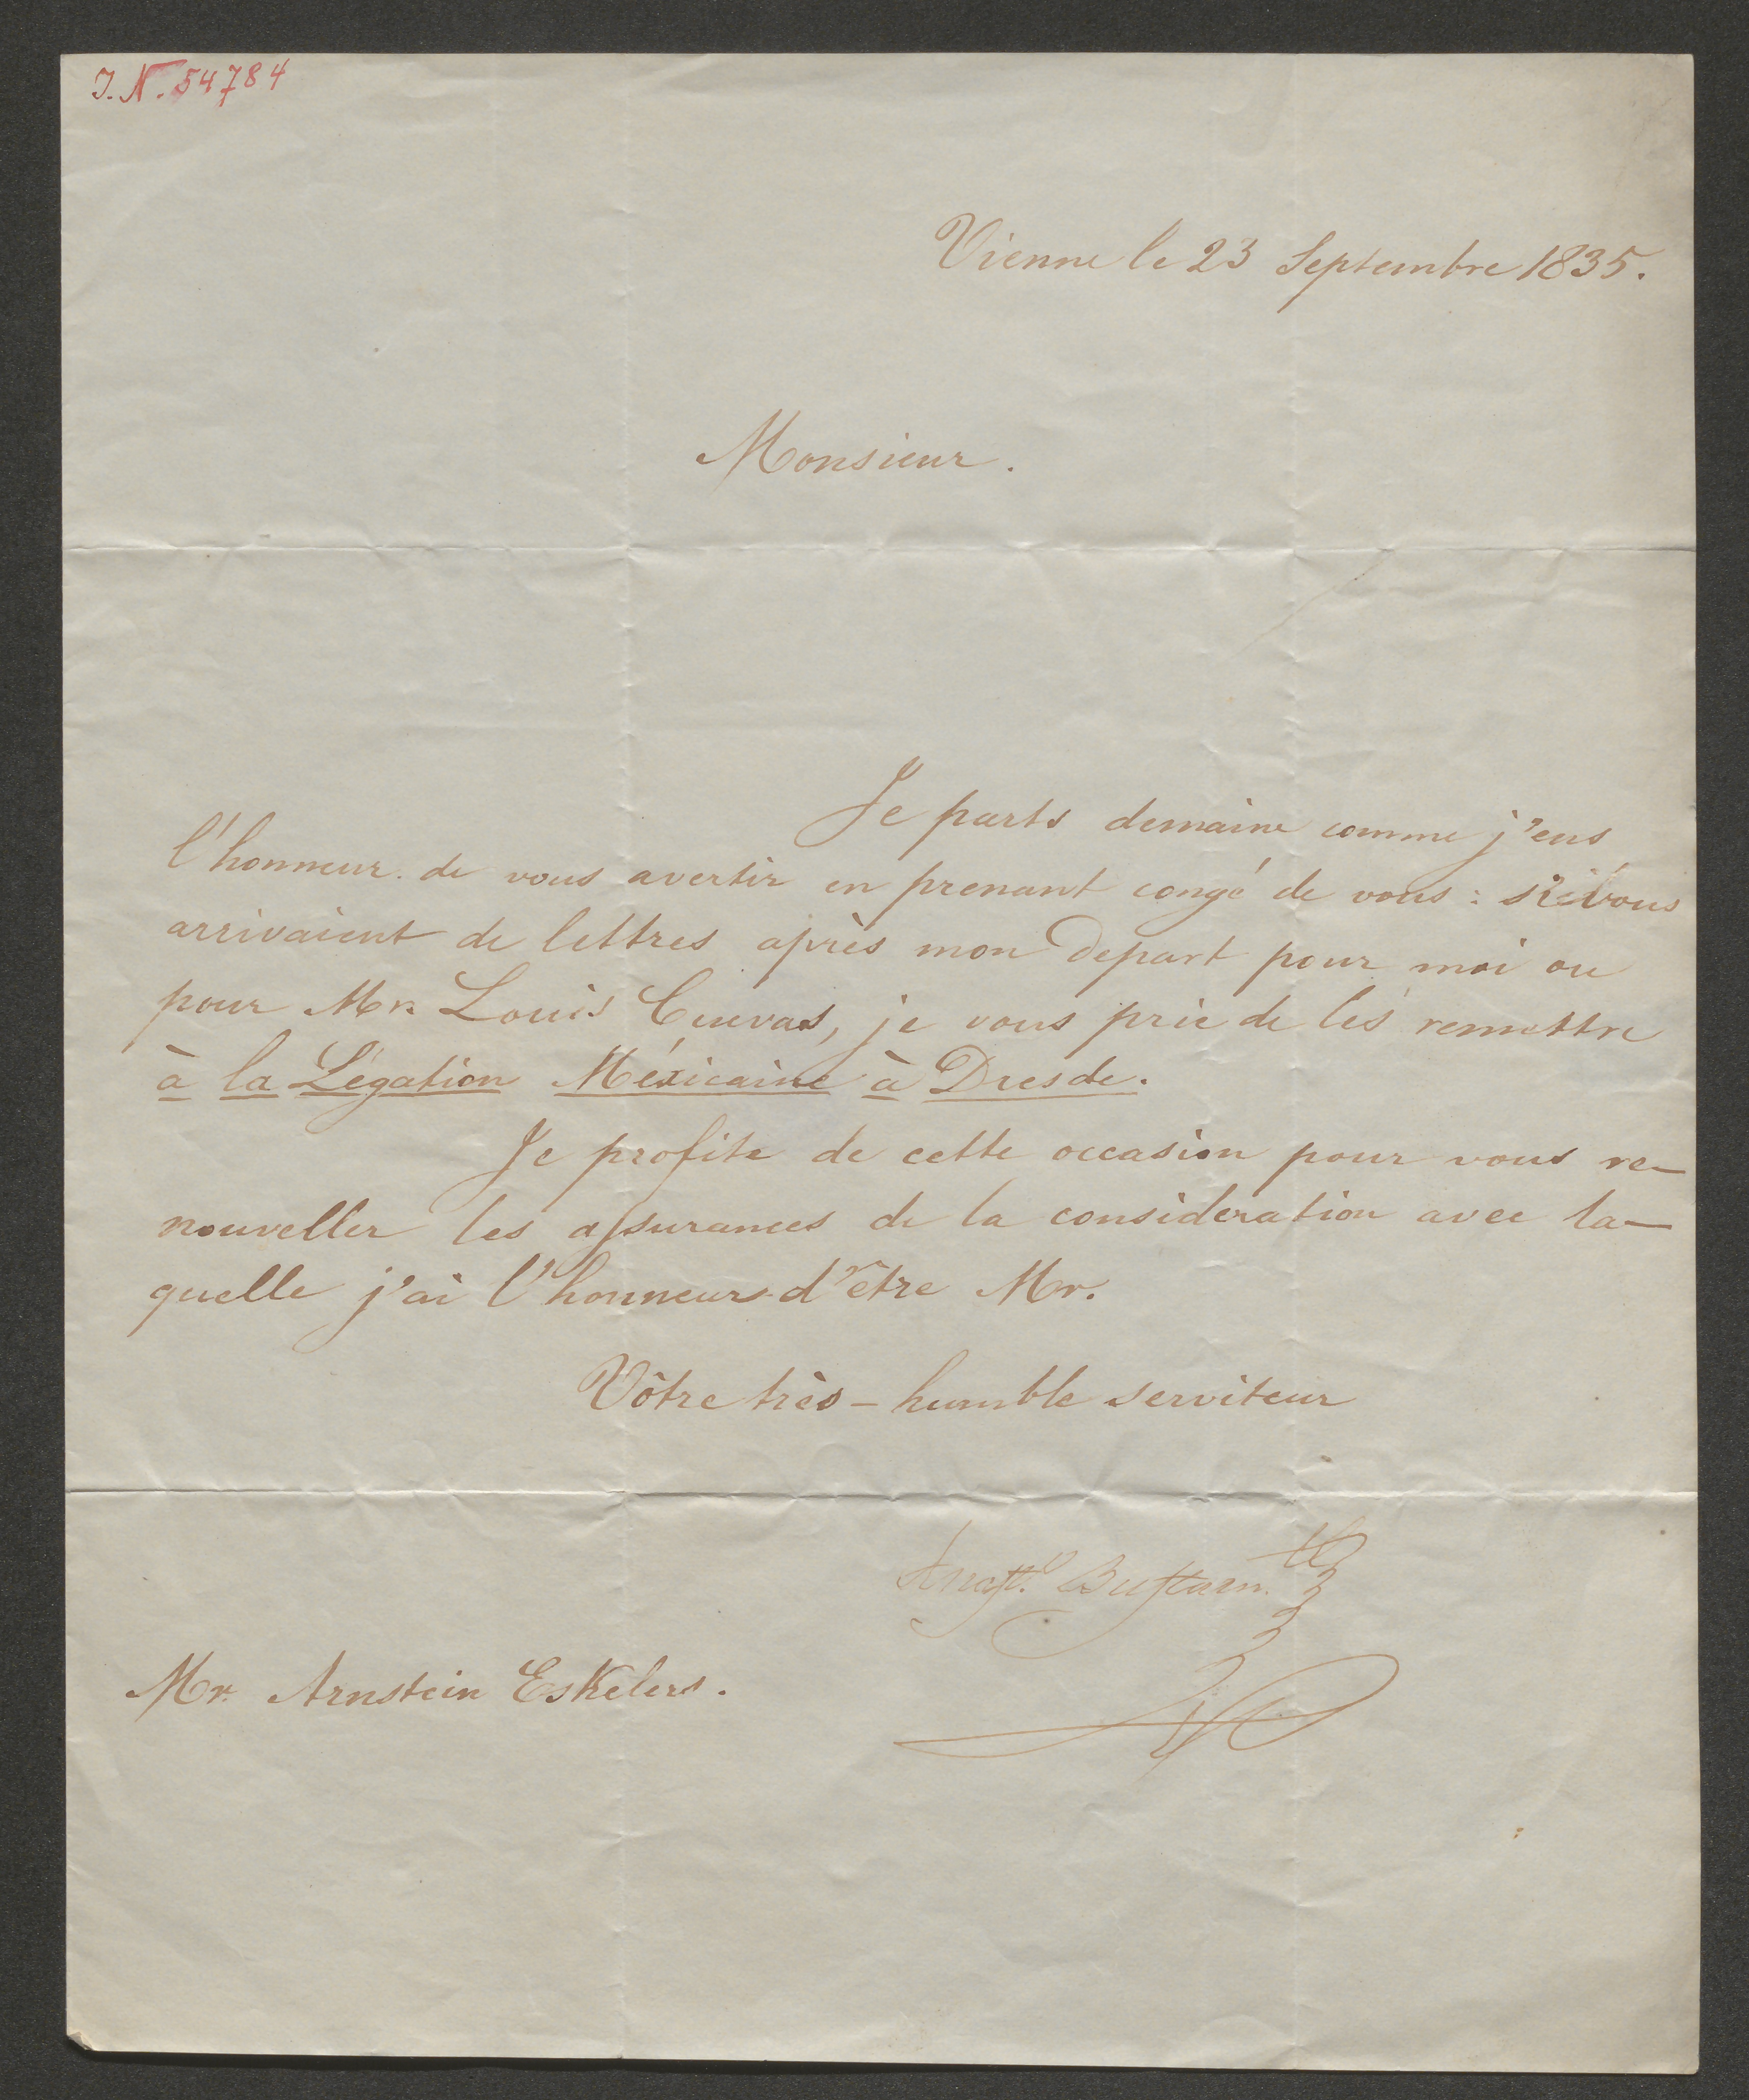 J. N. 54784
Vienne le 23 Septembre 1835.
Monsieur.
Je parts demaine comme j'eus
l'honneur de vous avertir en prenant congé de vous: s'il vous
arrivaient de lettres après mon depart pour moi ou
pour Mr. Louis Cuevas, je vous prie de les remettre
à la Légation Méxicaine à Dresde.
Je profite de cette occasion pour vous re-
nouveller les assurances de la consideration avec la-
quelle j'ai l'honneur d'être Mr.
Vôtre très-humble serviteur
Anast.o Bustam.te
Mr. Arnstein Eskelers.